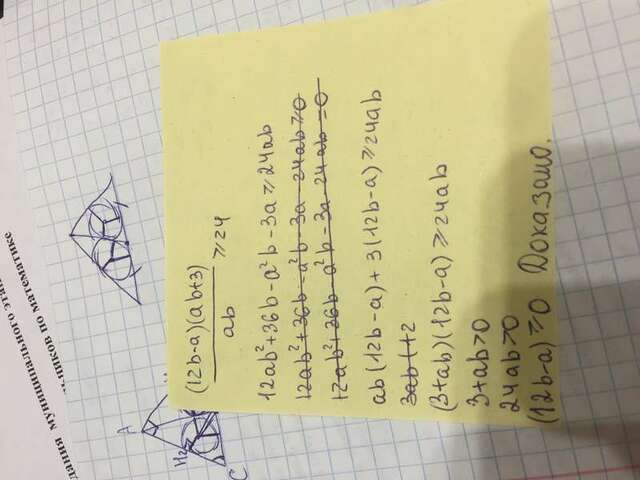 дания муниципального этап
льников по математике
A
H₂
C
(12b-a)(ab+3)
ab
≥24
12ab²+36b-a²b-3a≥24ab
12ab²+36b-a²b-3a-24ab≥0
12ab²+36b-a²b-3a-24ab=0
ab(12b-a)+3(12b-a)≥24ab
3ab(12
(3+ab)(12b-a)≥24ab
3+ab>0
24ab>0
(12b-a)≥0 Доказано.